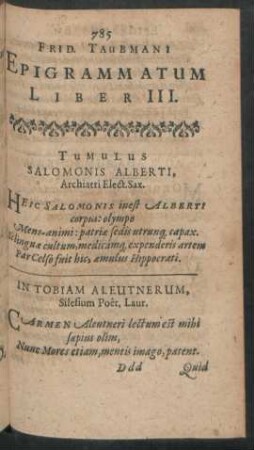 785
FRID. TAUBMANI
EPIGRAMMATUM
LIBER III.
TUMULUS
SALOMONIS ALBERTI,
Archiatri Elect. Sax.
HEIC SALOMONIS inest ALBERTI
corpus: olympo
Mens animi: patriæ sedis utrunq; capax.
Si linguæ cultum, medicámq; expenderis artem
Par Celso fuit hic, æmulus Hippocrati.
IN TOBIAM ALEUTNERUM,
Silesium Poët. Laur.
CARMEN Aleutneri lectum est mihi
sæpius olim,
Nunc Mores etiam, mentis imago, patent.
Ddd Quid